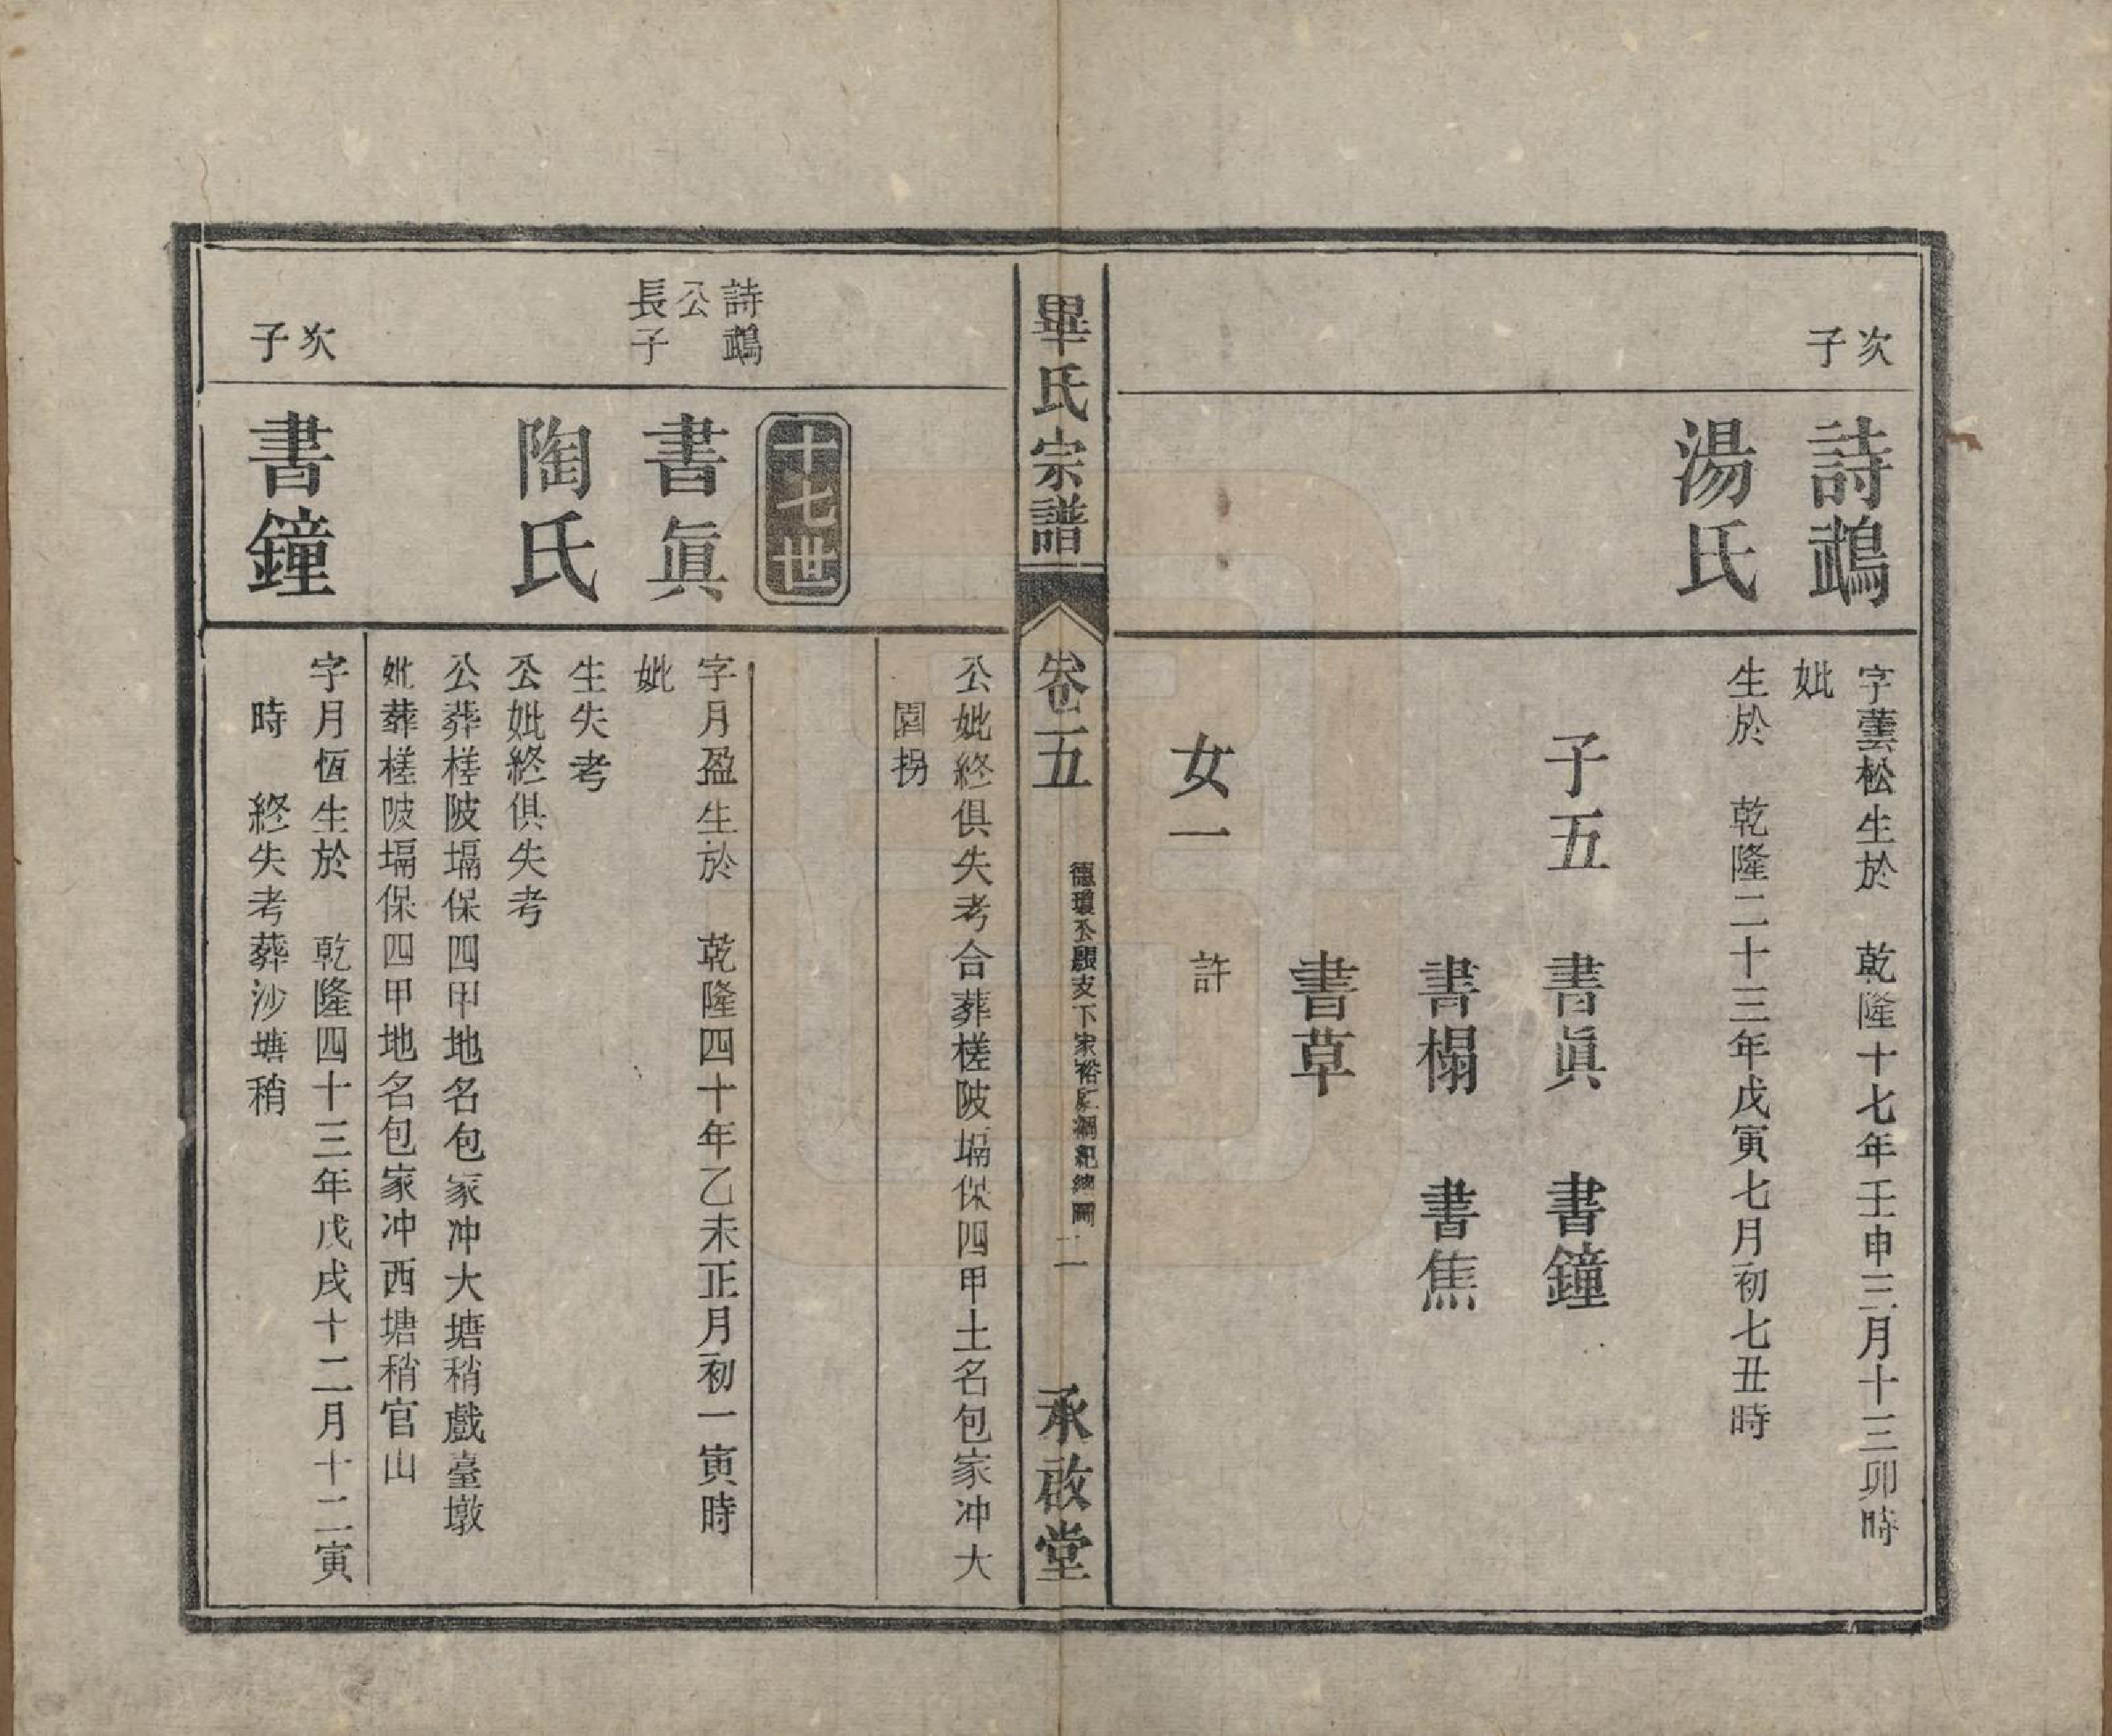 次子
詩鵡
字蕓松生於　乾隆十七年壬申三月十三卯時
妣
湯氏
生於　乾隆二十三年戊寅七月初七丑時
子五　書眞　書鐘
書榻　書焦
書草
女一　許
畢氏宗譜　卷五　二　承啟堂
公妣終俱失考合葬槎陂塥保四甲土名包家冲大
園拐
十七世
詩鵡公長子
書眞
字月盈生於　乾隆四十年乙未正月初一寅時
妣
陶氏
生失考
公妣終俱失考
公葬槎陂塥保四甲地名包家冲大塘稍戲臺墩
妣葬槎陂塥保四甲地名包家冲西塘稍官山
次子
書鐘
字月恆生於　乾隆四十三年戊戌十二月十二寅
時　終失考葬沙塘稍